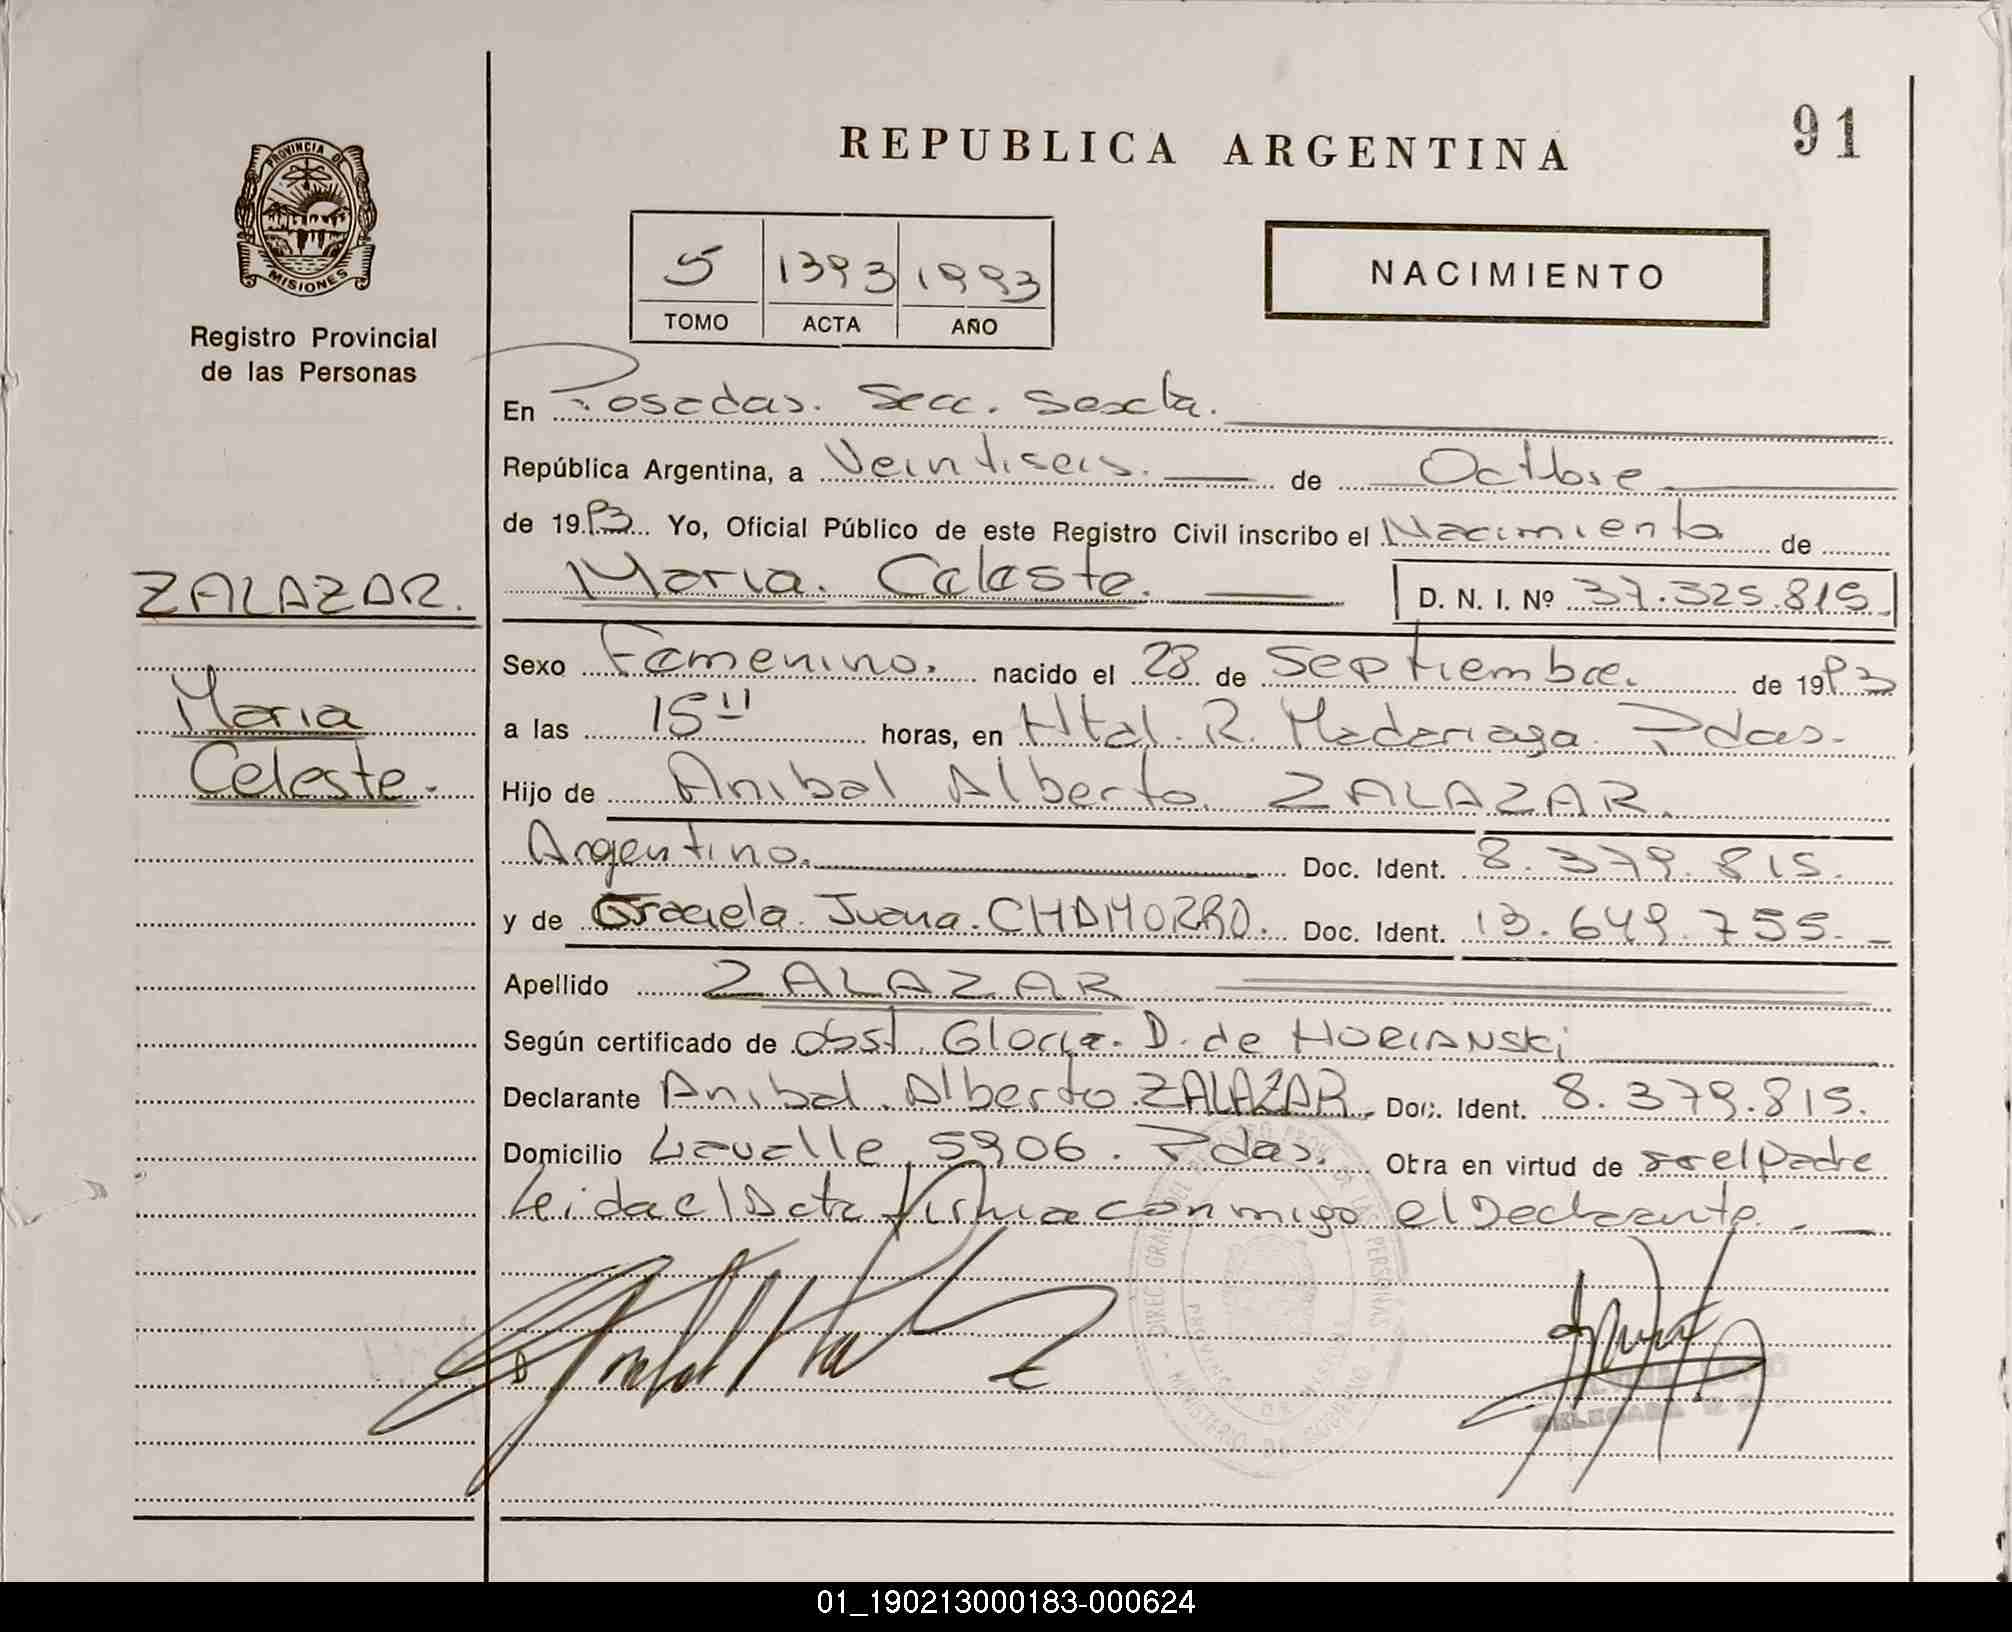 91
REPUBLICA ARGENTINA
PROVINCIA DE
MISIONES
Registro Provincial
de las Personas
5 1393 1993
TOMO ACTA AÑO
NACIMIENTO
En Posadas. Secc. Sexta.
República Argentina, a Veintiseis. de Octubre
de 1993 Yo, Oficial Público de este Registro Civil inscribo el Nacimiento de
ZALAZAR.
Maria. Celeste. D. N. I. Nº 37.325.815
Sexo Femenino. nacido el 28 de Septiembre. de 1993
Maria
a las 15 horas, en Htal. R. Madariaga. Pdas.
Celeste.
Hijo de Anibal Alberto ZALAZAR.
Argentino. Doc. Ident. 8.379.815.
y de Graciela. Juana. CHAMORRO. Doc. Ident. 13.649.755.
Apellido ZALAZAR
Según certificado de obst. Gloria. D. de HORIANSKI
Declarante Anibal. Alberto ZALAZAR. Doc. Ident. 8.379.815.
Domicilio Lavalle 5906. Pdas. Obra en virtud de ser el padre
Leida el Acta firma conmigo el Declarante.
01_190213000183-000624